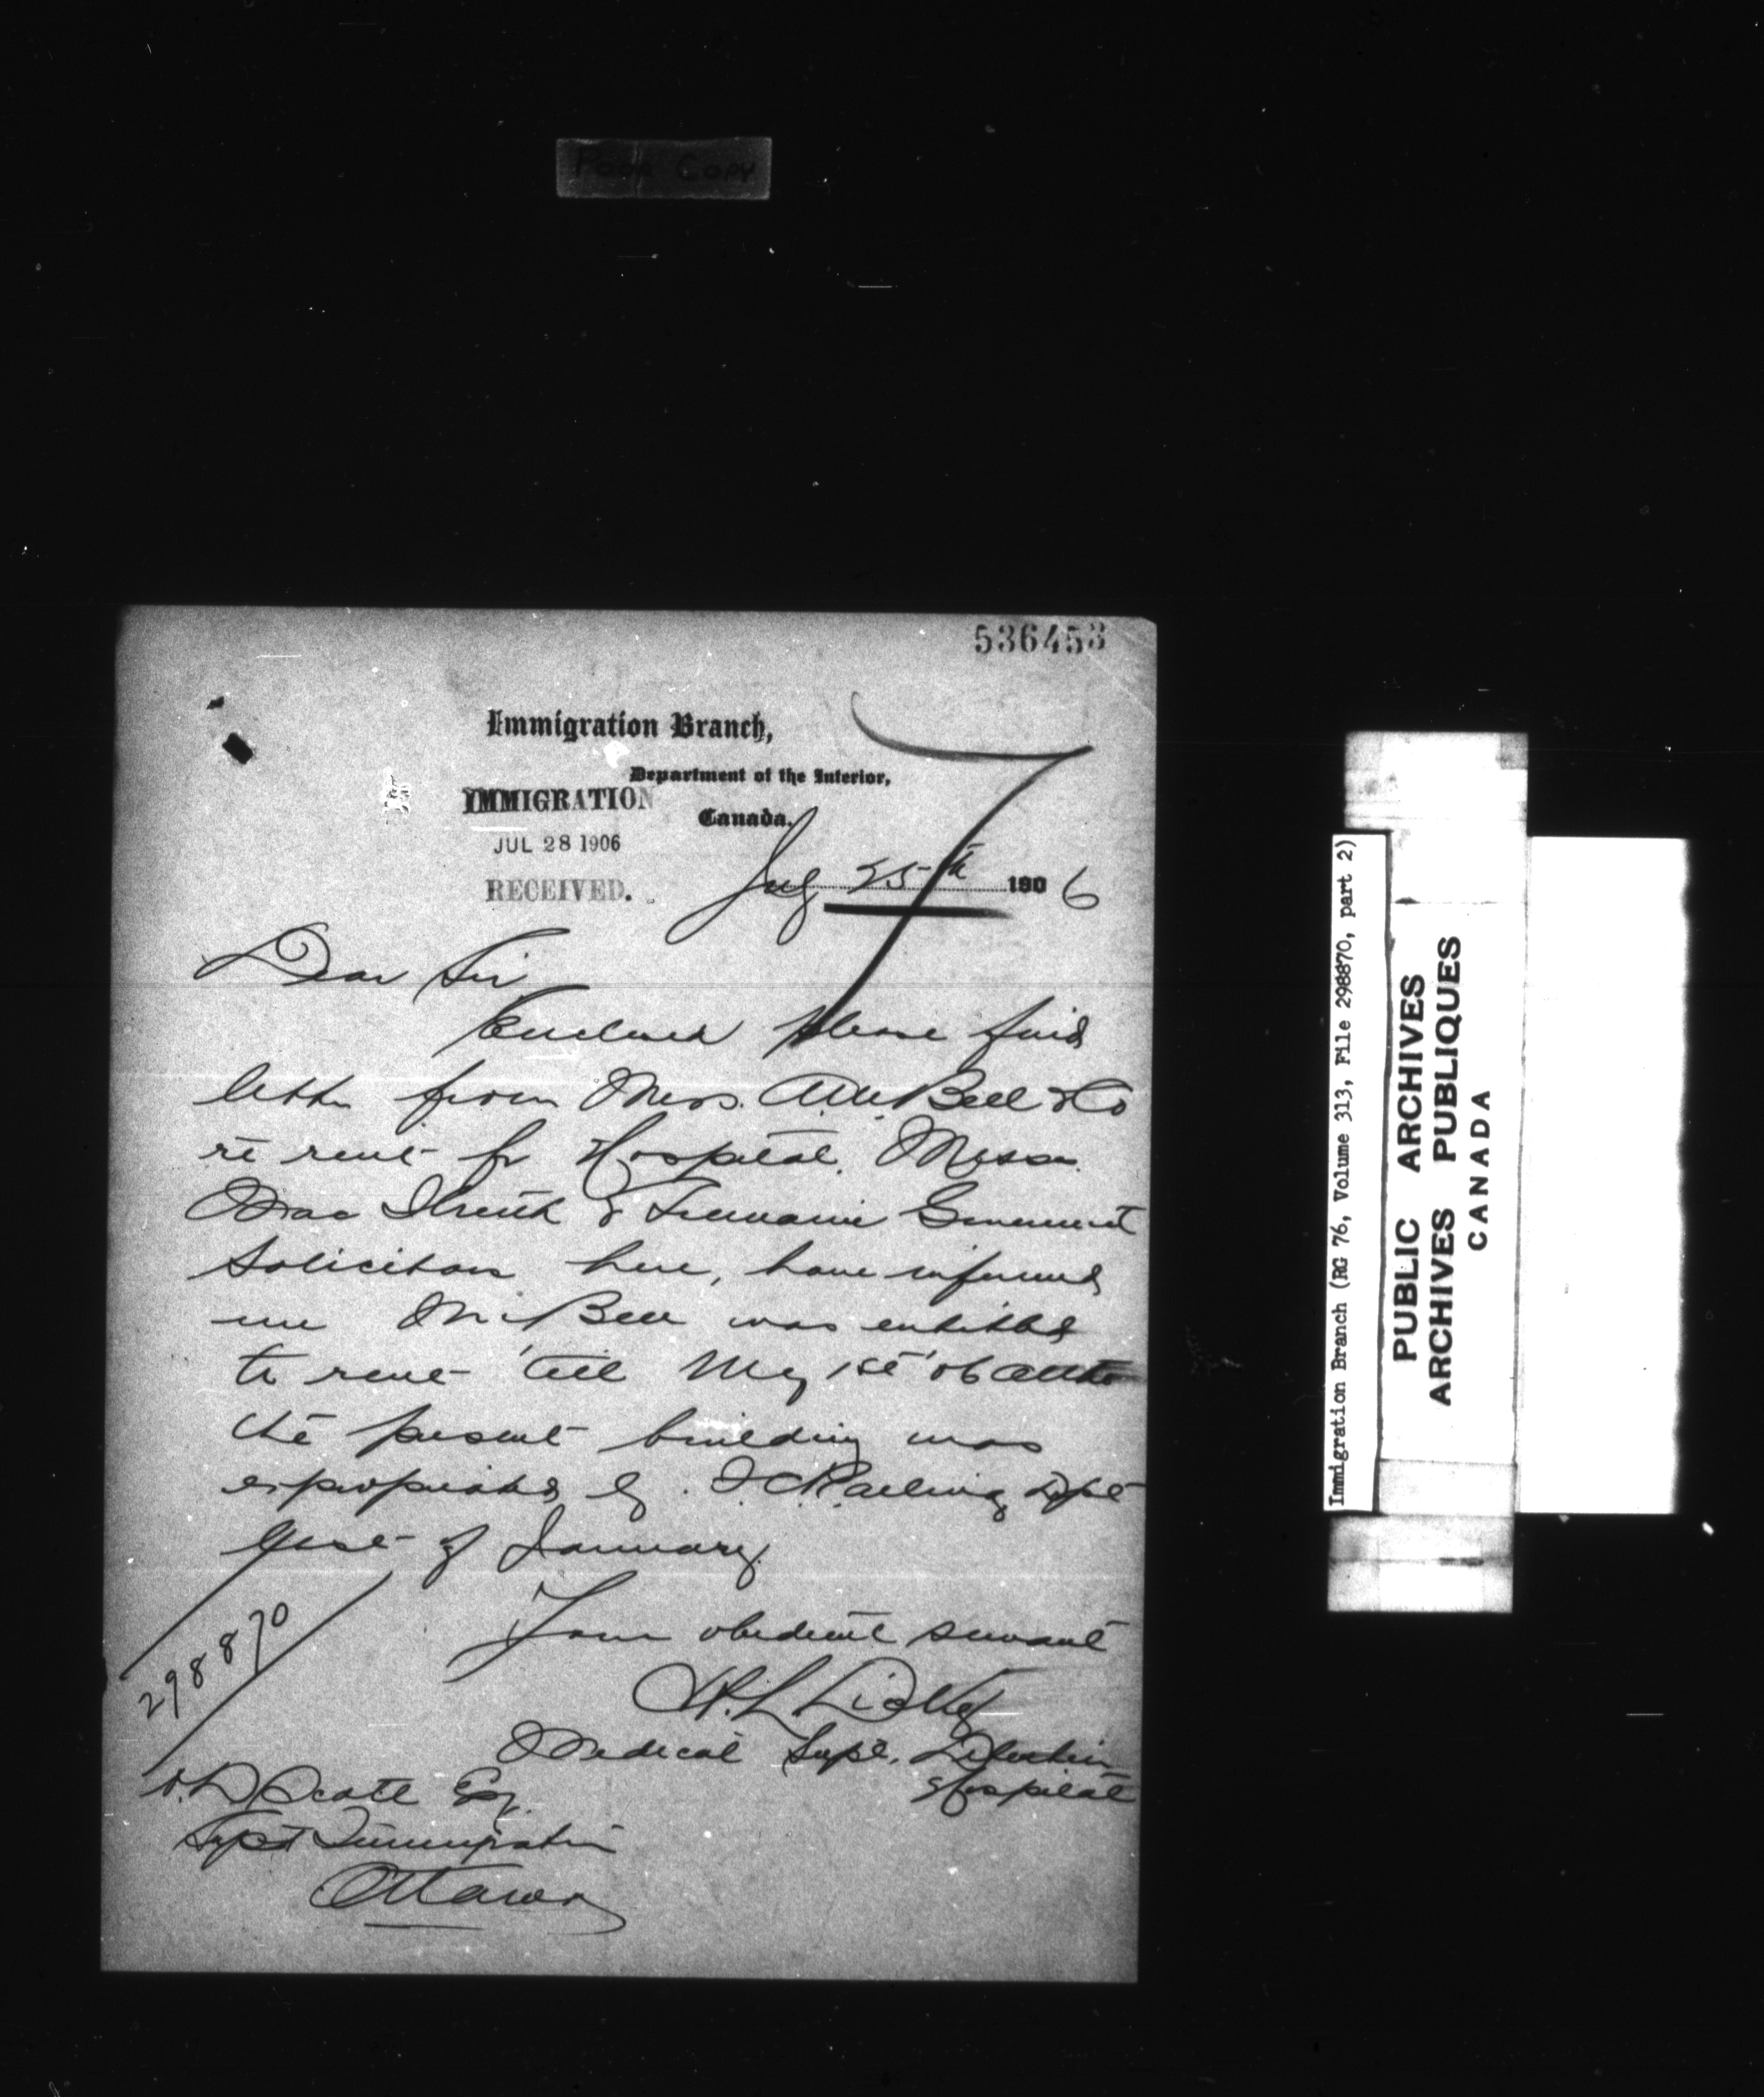 Poor Copy
536453
Immigration Branch,
Department of the Interior,
IMMIGRATION
Canada.
JUL 28 1906
RECEIVED.
July 25th 1906
Dear Sir
Enclosed please find
letter from Mess. A.M. Bell & Co
re rent for Hospital. Messrs.
MacIlreith & Tremaine Government
Solicitors here, have informed
me Mr Bell was entitled
to rent till May 1st '06 altho
the present building was
expropriated by I.C. Railway Dept
first of January.
Your obedient servant
Medical Supt. Detention
Hospital
298870
W.D. Scott Esq.
Supt Immigration
Ottawa
Immigration Branch (RG 76, Volume 313, File 298870, part 2)
PUBLIC ARCHIVES
ARCHIVES PUBLIQUES
CANADA